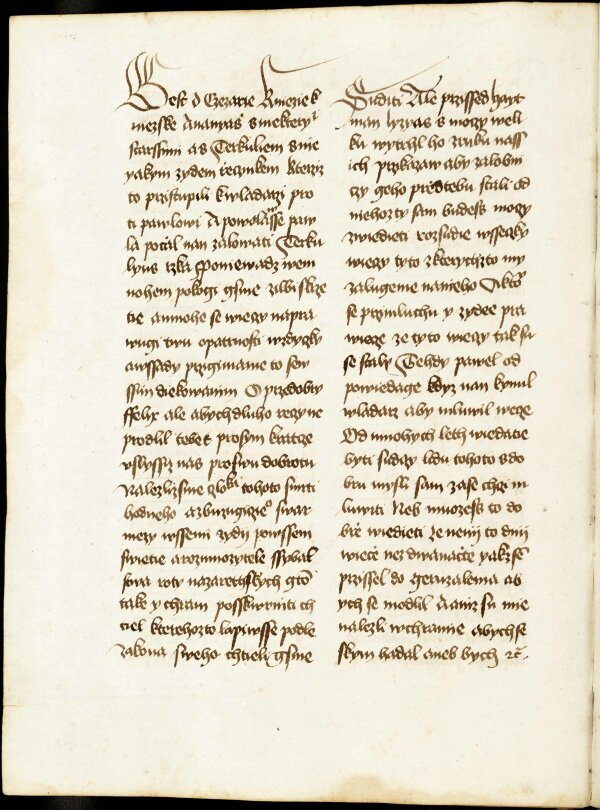 Gest d Cezarie Knieziek
niezske Ananyas s niektery
starssimi a s Terkuliem s nie
yakym zydem rzecznikem kteriz
to pristupili k wladarzi pro
ti pawlowi A powolasse paw
la poczal nan zalowati Terku
lyus rzka Ponewadz wem
nohem pokogi gsme
tie annohe se wieczy napra
wugi twu opatrnosti wzdyczky
awssady przigimame to sew
ssim diekowanim O przedobry
ffelix ale abych dluho rzeczy ne
prodlil tobe t prosym kratcze
vslyssiz nas pro swu dobrotu
Nalezli sme tohoto smrti
hodneho azburzugicieho swar
mezy wssemi zydy powssem
swietie arozmnozytele ssybal
stwa roty nazarethskych gto
take y chram posskwrniti ch
tiel kterehozto lapiwsse podle
zakona sweho chtieli gsme
Suditi Ale przissed hayt
man lyzyas s moczy weli
ku wytrhl ho zruku nass
ich Przikazaw aby zalobni
czy geho przedtebu stali od
niehozto sam budess moczy
zwiedieti rozsudie wsseczky
wieczy tyto zkterychzto my
zalugeme naneho A kto
se przimluchu y zydee pra
wiecze ze tyto wieczy tak su
se staly Tehdy pawel od
powiedage kdyz nan kynul
wladarz aby mluwil wecze
Od mnohych leth wiedatie
byti sudczy lidu tohoto s do
bru mysli sam zase chczi m
luwiti Neb muozess to do
brze wiedieti ze neniy to dnij
wiecze nez dwanacte yakz sem
przissel do geruzalema ab
ych se modlil A aniz su mie
nalezli wchramie abychse
skym hadal aneb bych rc.